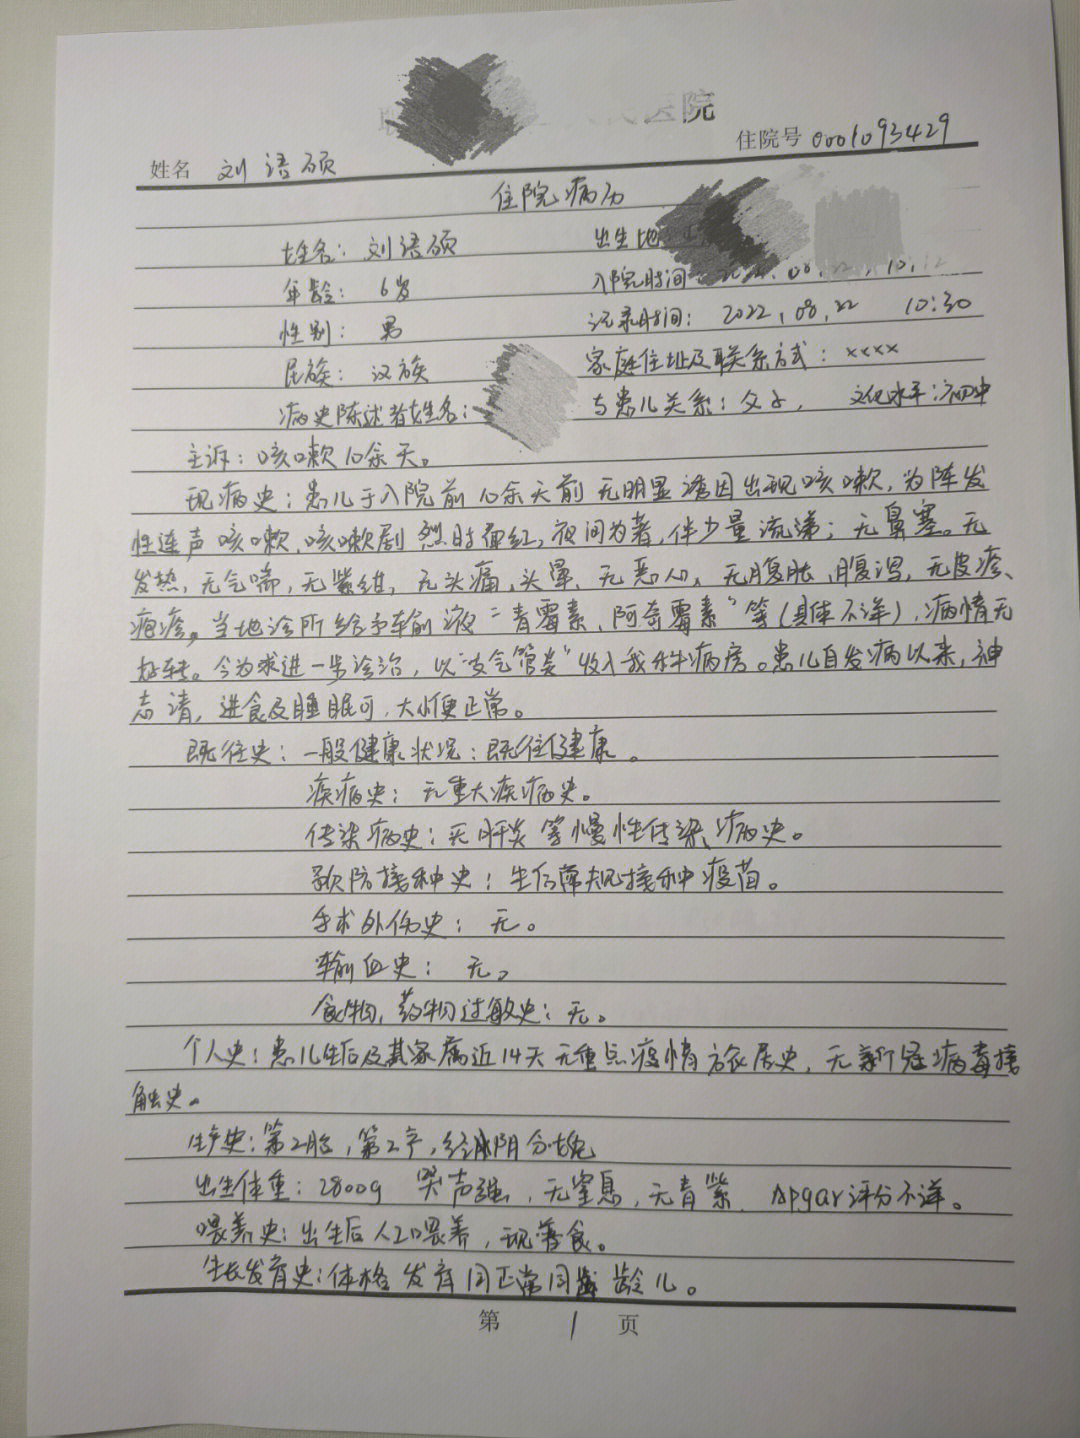 医院
姓名 刘语硕 住院号 0001093429
住院病历
姓名：刘语硕 出生地
年龄：6岁 入院时间 08.22, 10:12
性别：男 记录时间：2022,08,22 10:30
民族：汉族 家庭住址及联系方式：××××
病史陈述者姓名： 与患儿关系：父子, 文化水平：初中
主诉：咳嗽10余天。
现病史：患儿于入院前10余天前无明显诱因出现咳嗽,为阵发
性连声咳嗽,咳嗽剧烈时面红,夜间为著,伴少量流涕；无鼻塞。无
发热,无气喘,无紫绀,无头痛,头晕,无恶心,无腹胀,腹泻,无皮疹、
疱疹。当地诊所给予输液“青霉素、阿奇霉素”等(具体不详),病情无
好转。今为求进一步诊治,以“支气管炎”收入我科病房。患儿自发病以来,神
志清,进食及睡眠可,大小便正常。
既往史：一般健康状况：既往健康。
疾病史：无重大疾病史。
传染病史：无肝炎等慢性传染病史。
预防接种史：生后常规接种疫苗。
手术外伤史：无。
输血史：无。
食物,药物过敏史：无。
个人史：患儿生后及其家属近14天无重点疫情旅居史,无新冠病毒接
触史。
生产史：第2胎,第2产,经阴分娩
出生体重：2800g 哭声强,无窒息,无青紫. Apgar评分不详。
喂养史：出生后人工喂养,现普食。
生长发育史：体格发育同正常同龄儿。
第 1 页